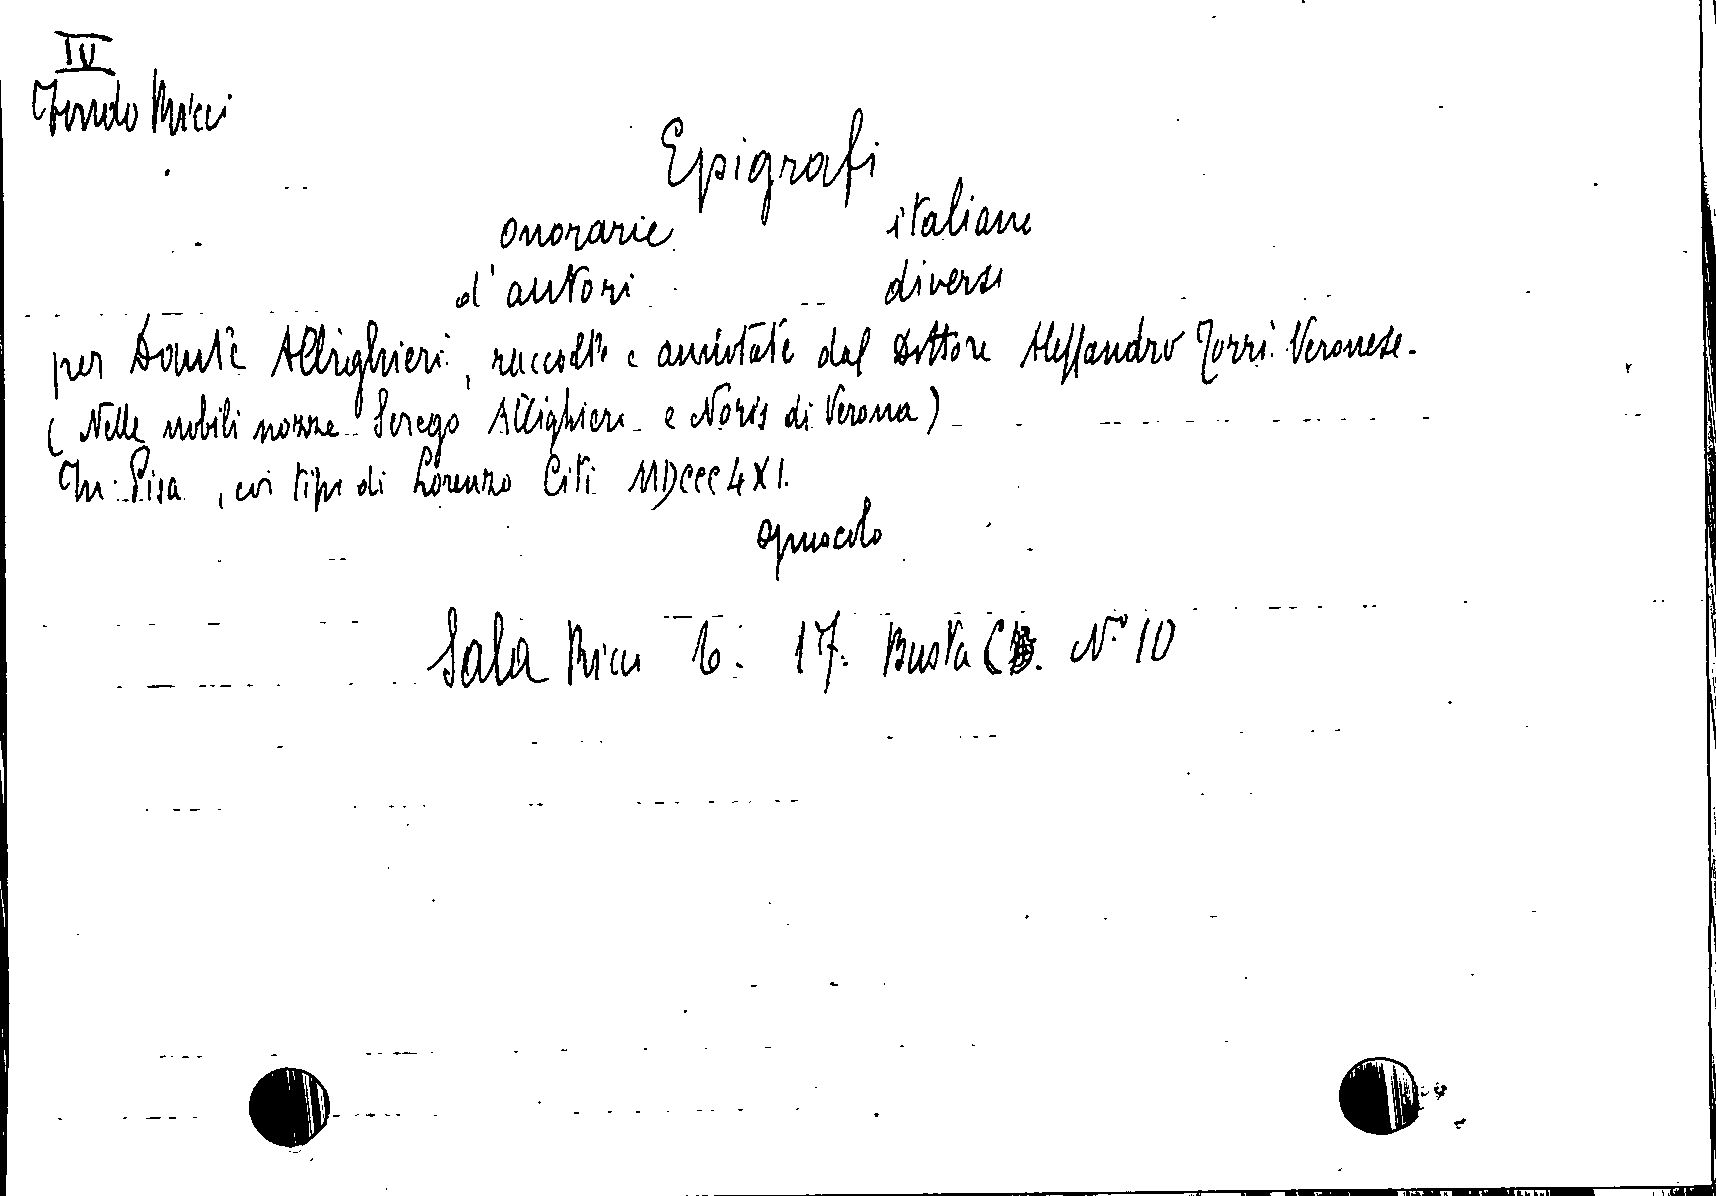 IV
Fondo Ricci
Epigrafi
onorarie italiane
d'autori diversi
per Dante Allighieri, raccolte e annotate dal Dottore Alessandro Torri Veronese.
(Nelle nobili nozze Serego Allighieri e Noris di Verona)
In Pisa, coi tipi di Lorenzo Citi MDCCC4XI.
opuscolo
Sala Ricci 6. 17. Busta N° 10